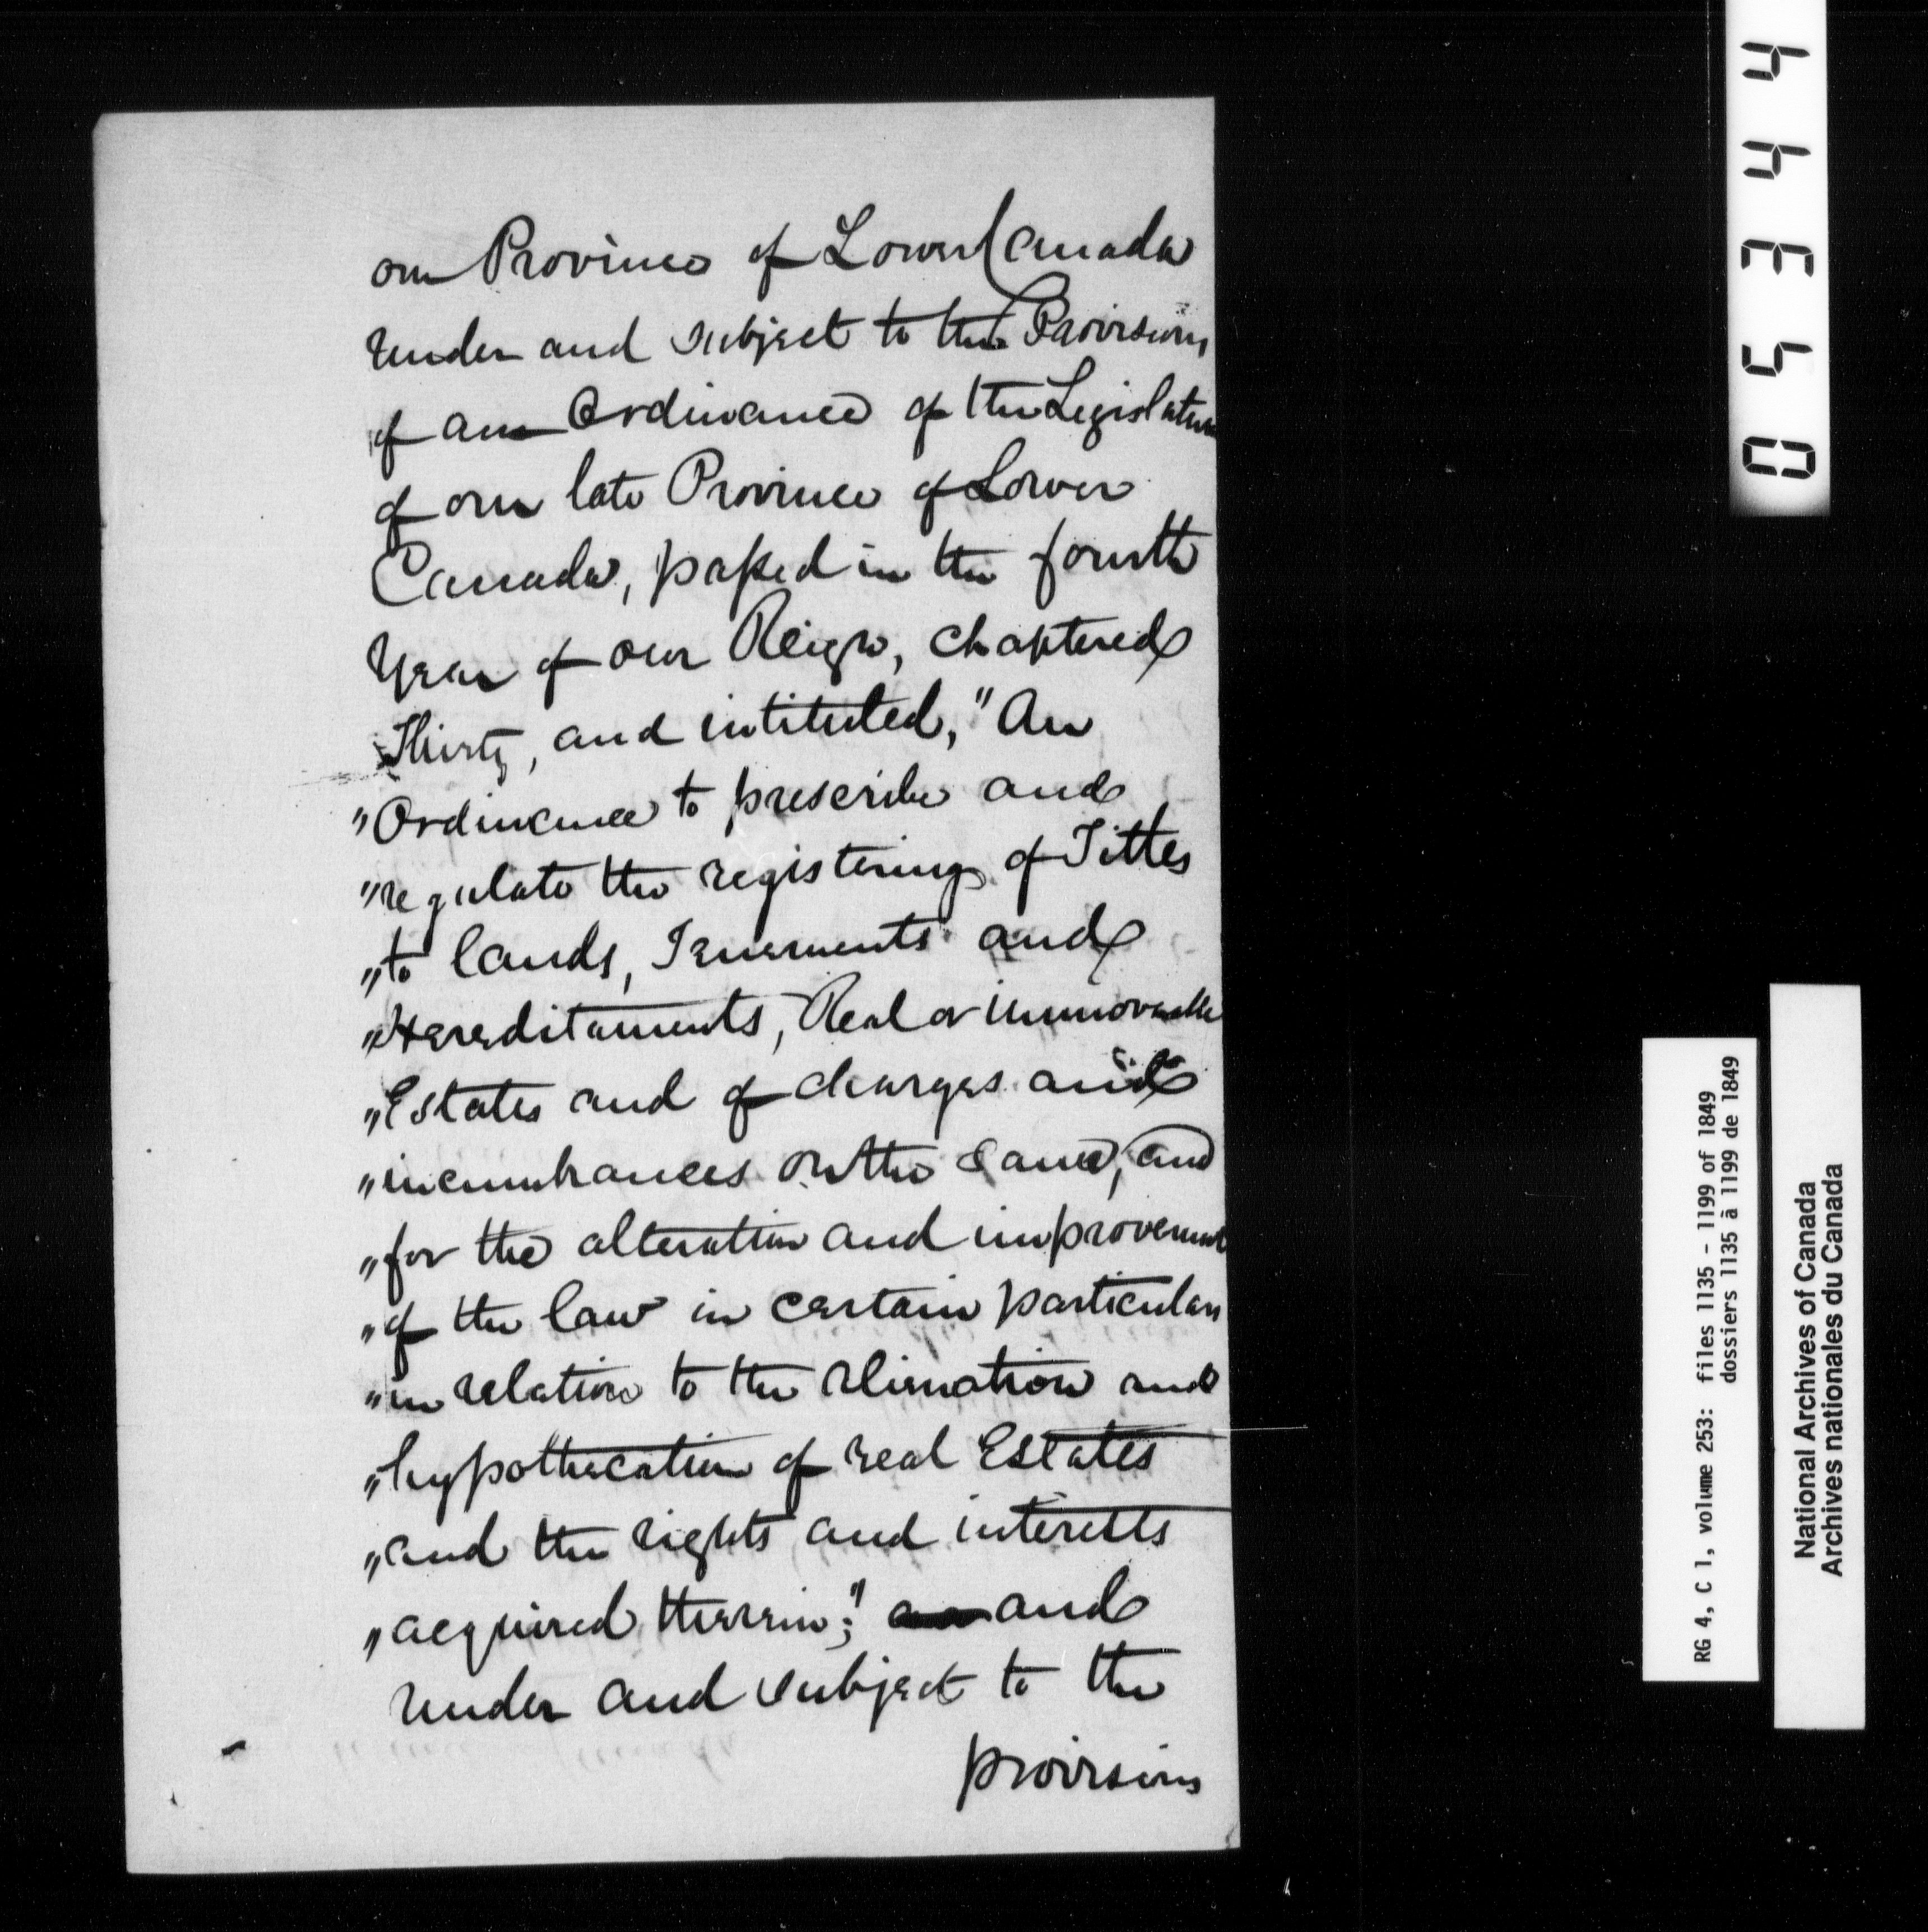 our Province of Lower Canada
under and subject to the Provisions
of an Ordinance of the Legislature
of our late Province of Lower
Canada, passed in the fourth
Year of our Reign, chaptered
Thirty, and intituled, "An
"Ordinance to prescribe and
"regulate the registering of Titles
"to lands, Tenements and
"Hereditaments, Real or immoveable
"Estates and of charges and
"incumbrances on the same, and
"for the alteration and improvement
"of the law in certain particulars
"in relation to the alienation and
"hypothecation of real Estates
"and the rights and interests
"acquired therein;" and
under and subject to the
provisions
05344
RG 4, C 1, volume 253: files 1135 - 1199 of 1849
dossiers 1135 à 1199 de 1849
National Archives of Canada
Archives nationales du Canada